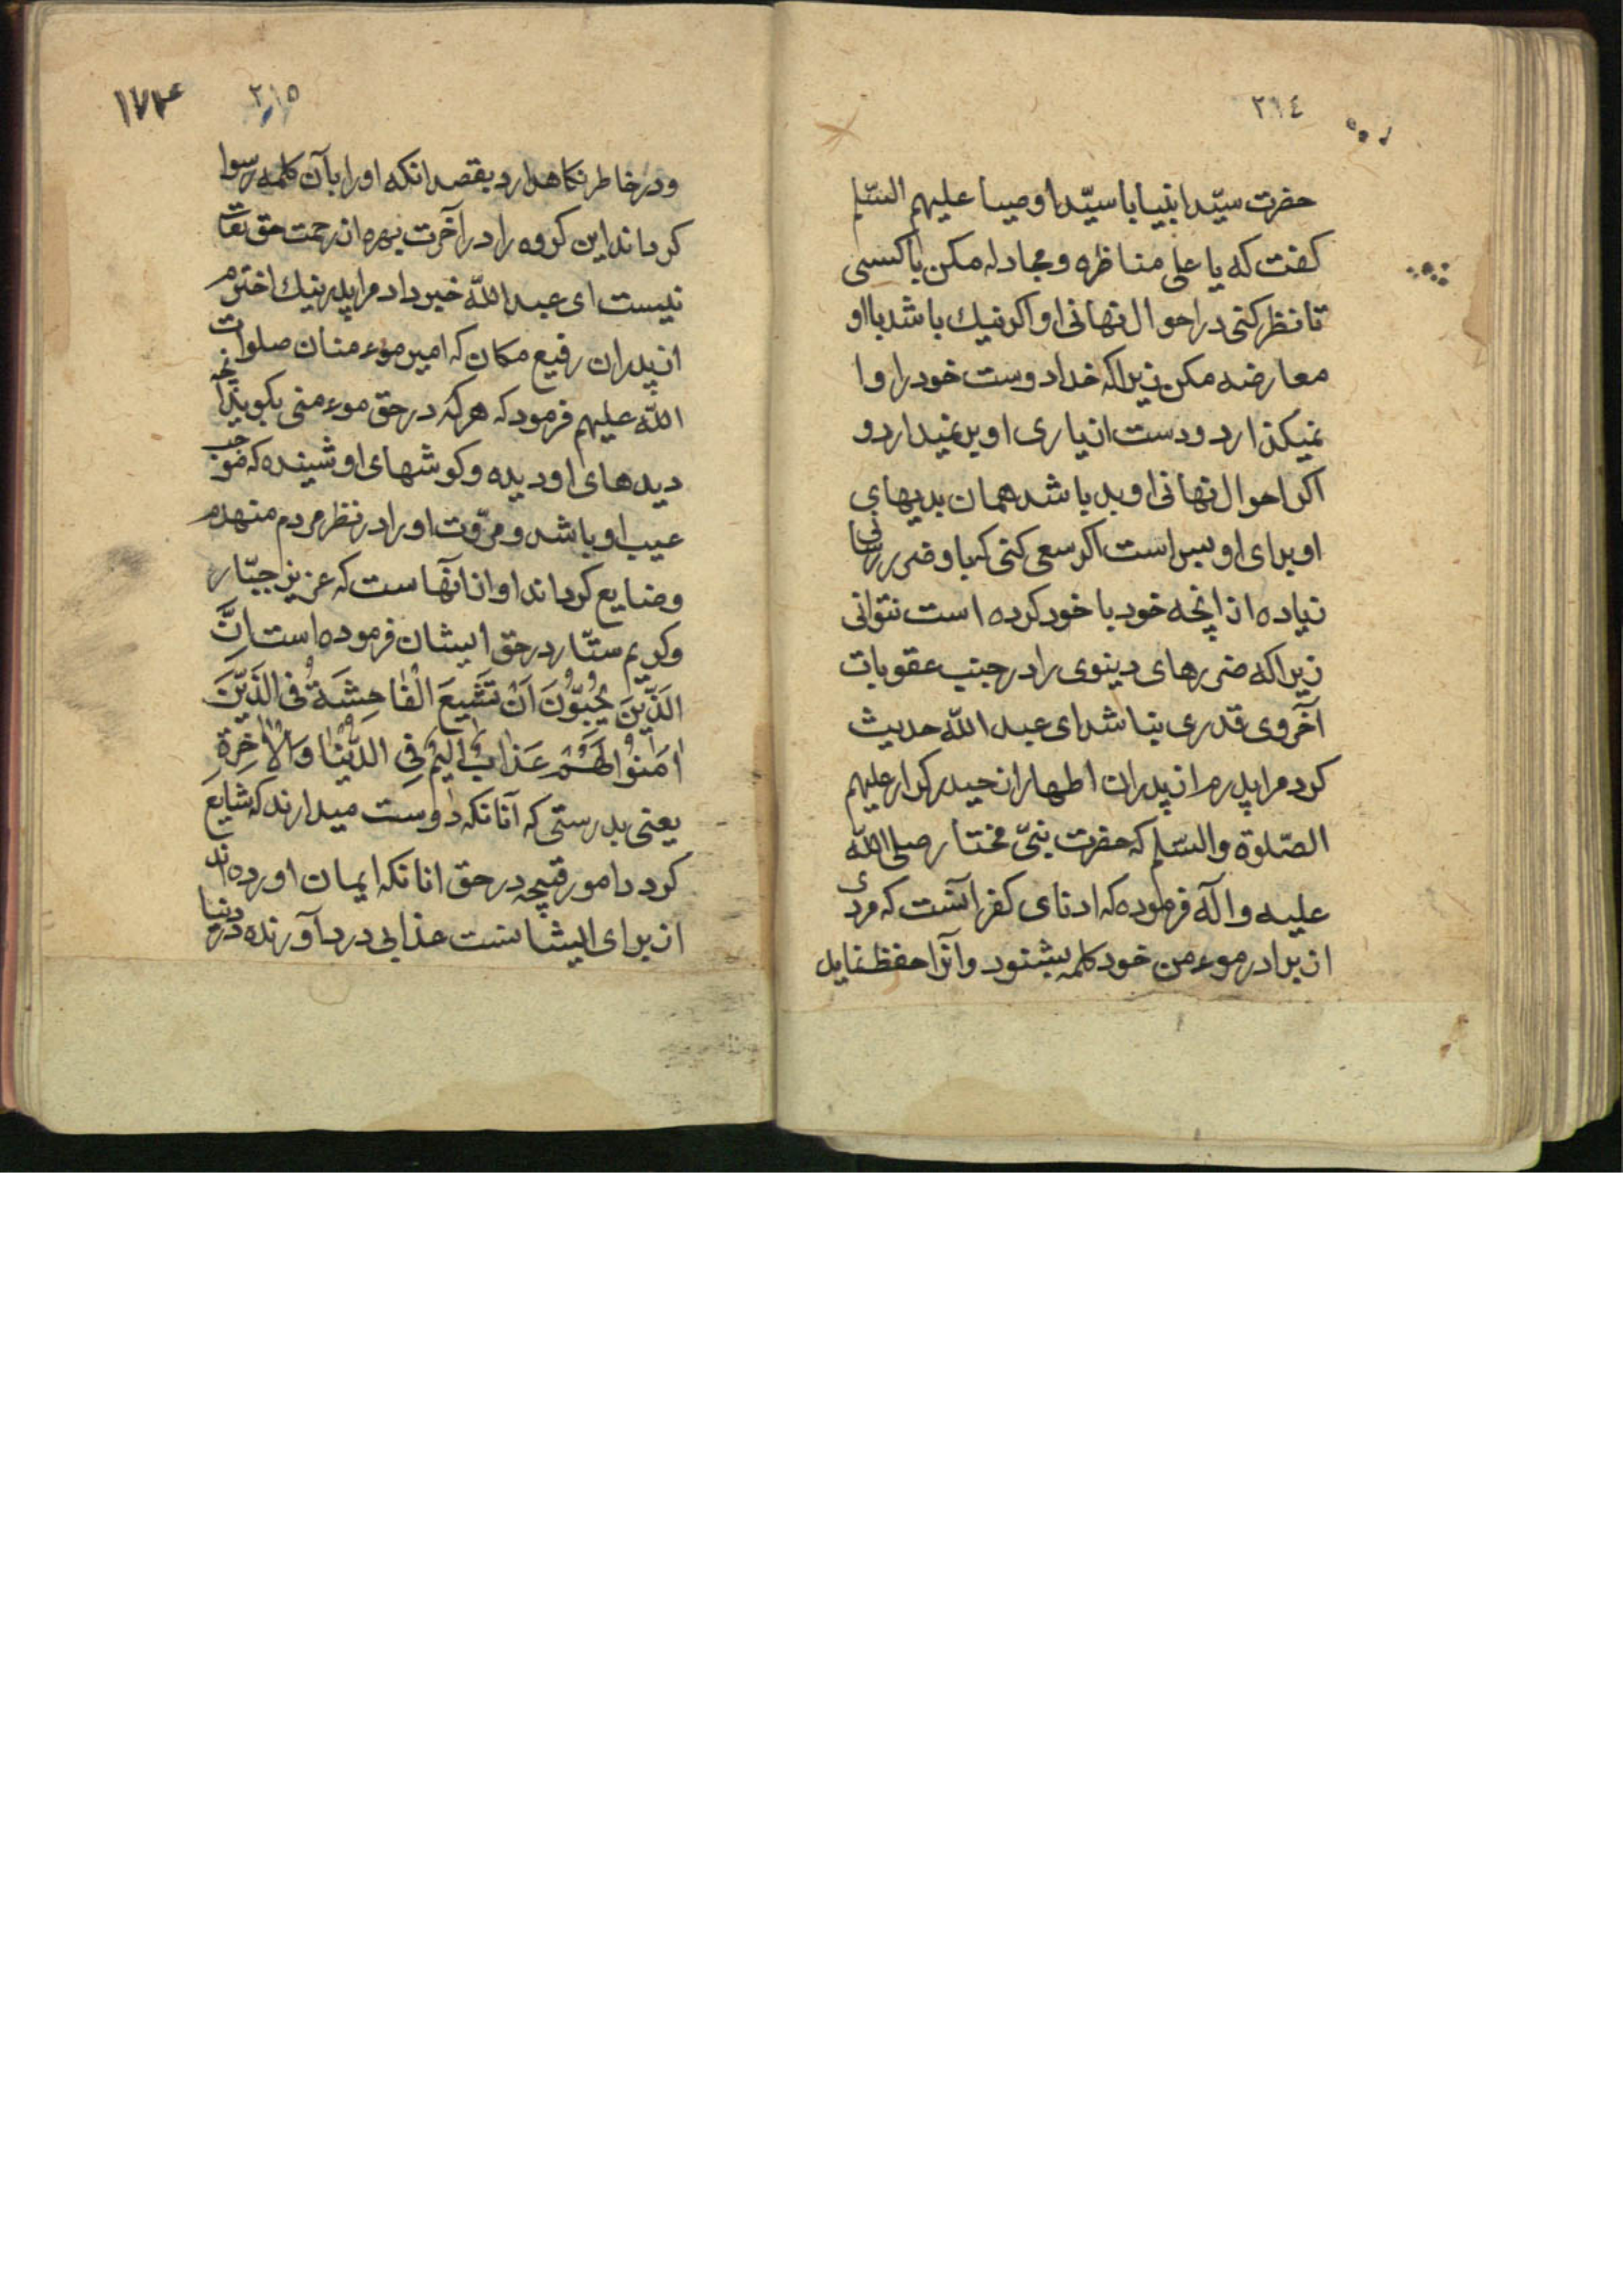 ٢١٤
حضرت سیّد انبیا با سیّد اوصیا علیهم السّلم
کفت که یا علی مناظره و مجادله مکن با کسی
تا نظر کنی در احوال نهانی او اکر نیك باشد با او
معارضه مکن زیرا که خدا دوست خود را وا
نمیکذارد و دست از یاری او برنمیدارد و
اکر احوال نهانی او بد باشد همان بدیهای
او برای او بس است اکر سعی کنی که با و ضرر رسانی
زیاده از انچه خود با خود کرده است نتوانی
زیرا که ضررهای دینوی را در جنب عقوبات
آخروی قدری بناشد ای عبد اللّه حدیث
کرد مرا پدرم از پدران اطهار از حیدر کرار علیهم
الصّلوة والسّلم که حضرت نبیّ مختار صلی اللّه
علیه و آله فرموده که ادنای کفر آنست که مردی
از برادر موءمن خود کلمه بشنود و آنرا حفظ نماید
٢١٥
١٧٣
و در خاطر نکاهدارد بقصد انکه او را بآن کلمه رسوا
کرداند این کروه را در آخرت بهره از رحمت حق تعا
نیست ای عبد اللّه خبر داد مرا پدر نیك اخترم
از پدران رفیع مکان که امیر موءمنان صلوات
اللّه علیهم فرمود که هر که در حق موءمنی بکوید آنچه
دیدهای او دیده و کوشهای او شینده که موجب
عیب او باشد و مروّت او را در نظر مردم منهدم
و ضایع کرداند او از انهاست که عزیز جبّار
و کریم ستّار در حق ایشان فرموده است اِنَّ
الَّذِینَ یُحِبُّونَ اَنْ تَشِیعَ الْفَاحِشَةُ فِی الَّذِینَ
اٰمَنُوا لَهُمْ عَذَابٌ اَلِیمٌ فِی الدُّنْیَا وَالْاٰخِرَةِ
یعنی بدرستی که آنانکه دوست میدارند که شایع
کردد امور قبیحه در حق انانکه ایمان اورده اند
از برای ایشانست عذابی درد آورنده در دنیا